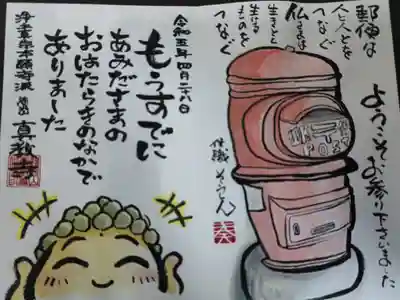 郵便は
人と人とを
つなぐ
仏さまは
生きとし
生けるものをつなぐ
ようこそお参り下さいました
POST
令和五年 四月二十八日
もうすでに
あみださまの
おはたらきのなかで
ありました
浄土真宗本願寺派